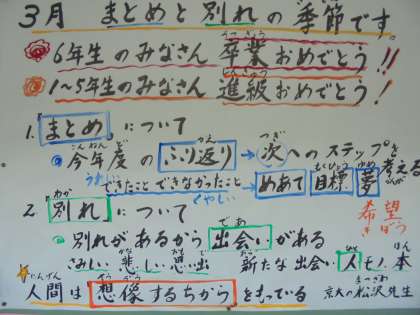 3月 まとめと別れの季節です。
6年生のみなさん 卒業おめでとう!!
1~5年生のみなさん 進級おめでとう!
1.まとめ について
今年度のふり返り→次へのステップを考える
うれしい できたこと できなかったこと くやしい めあて 目標 夢が
2.別れ について 希望
別れがあるから 出会いがある
さみしい 悲しい思い出 新たな出会い 人モノ.本
人間は 想像するちから をもっている 京大の松沢先生